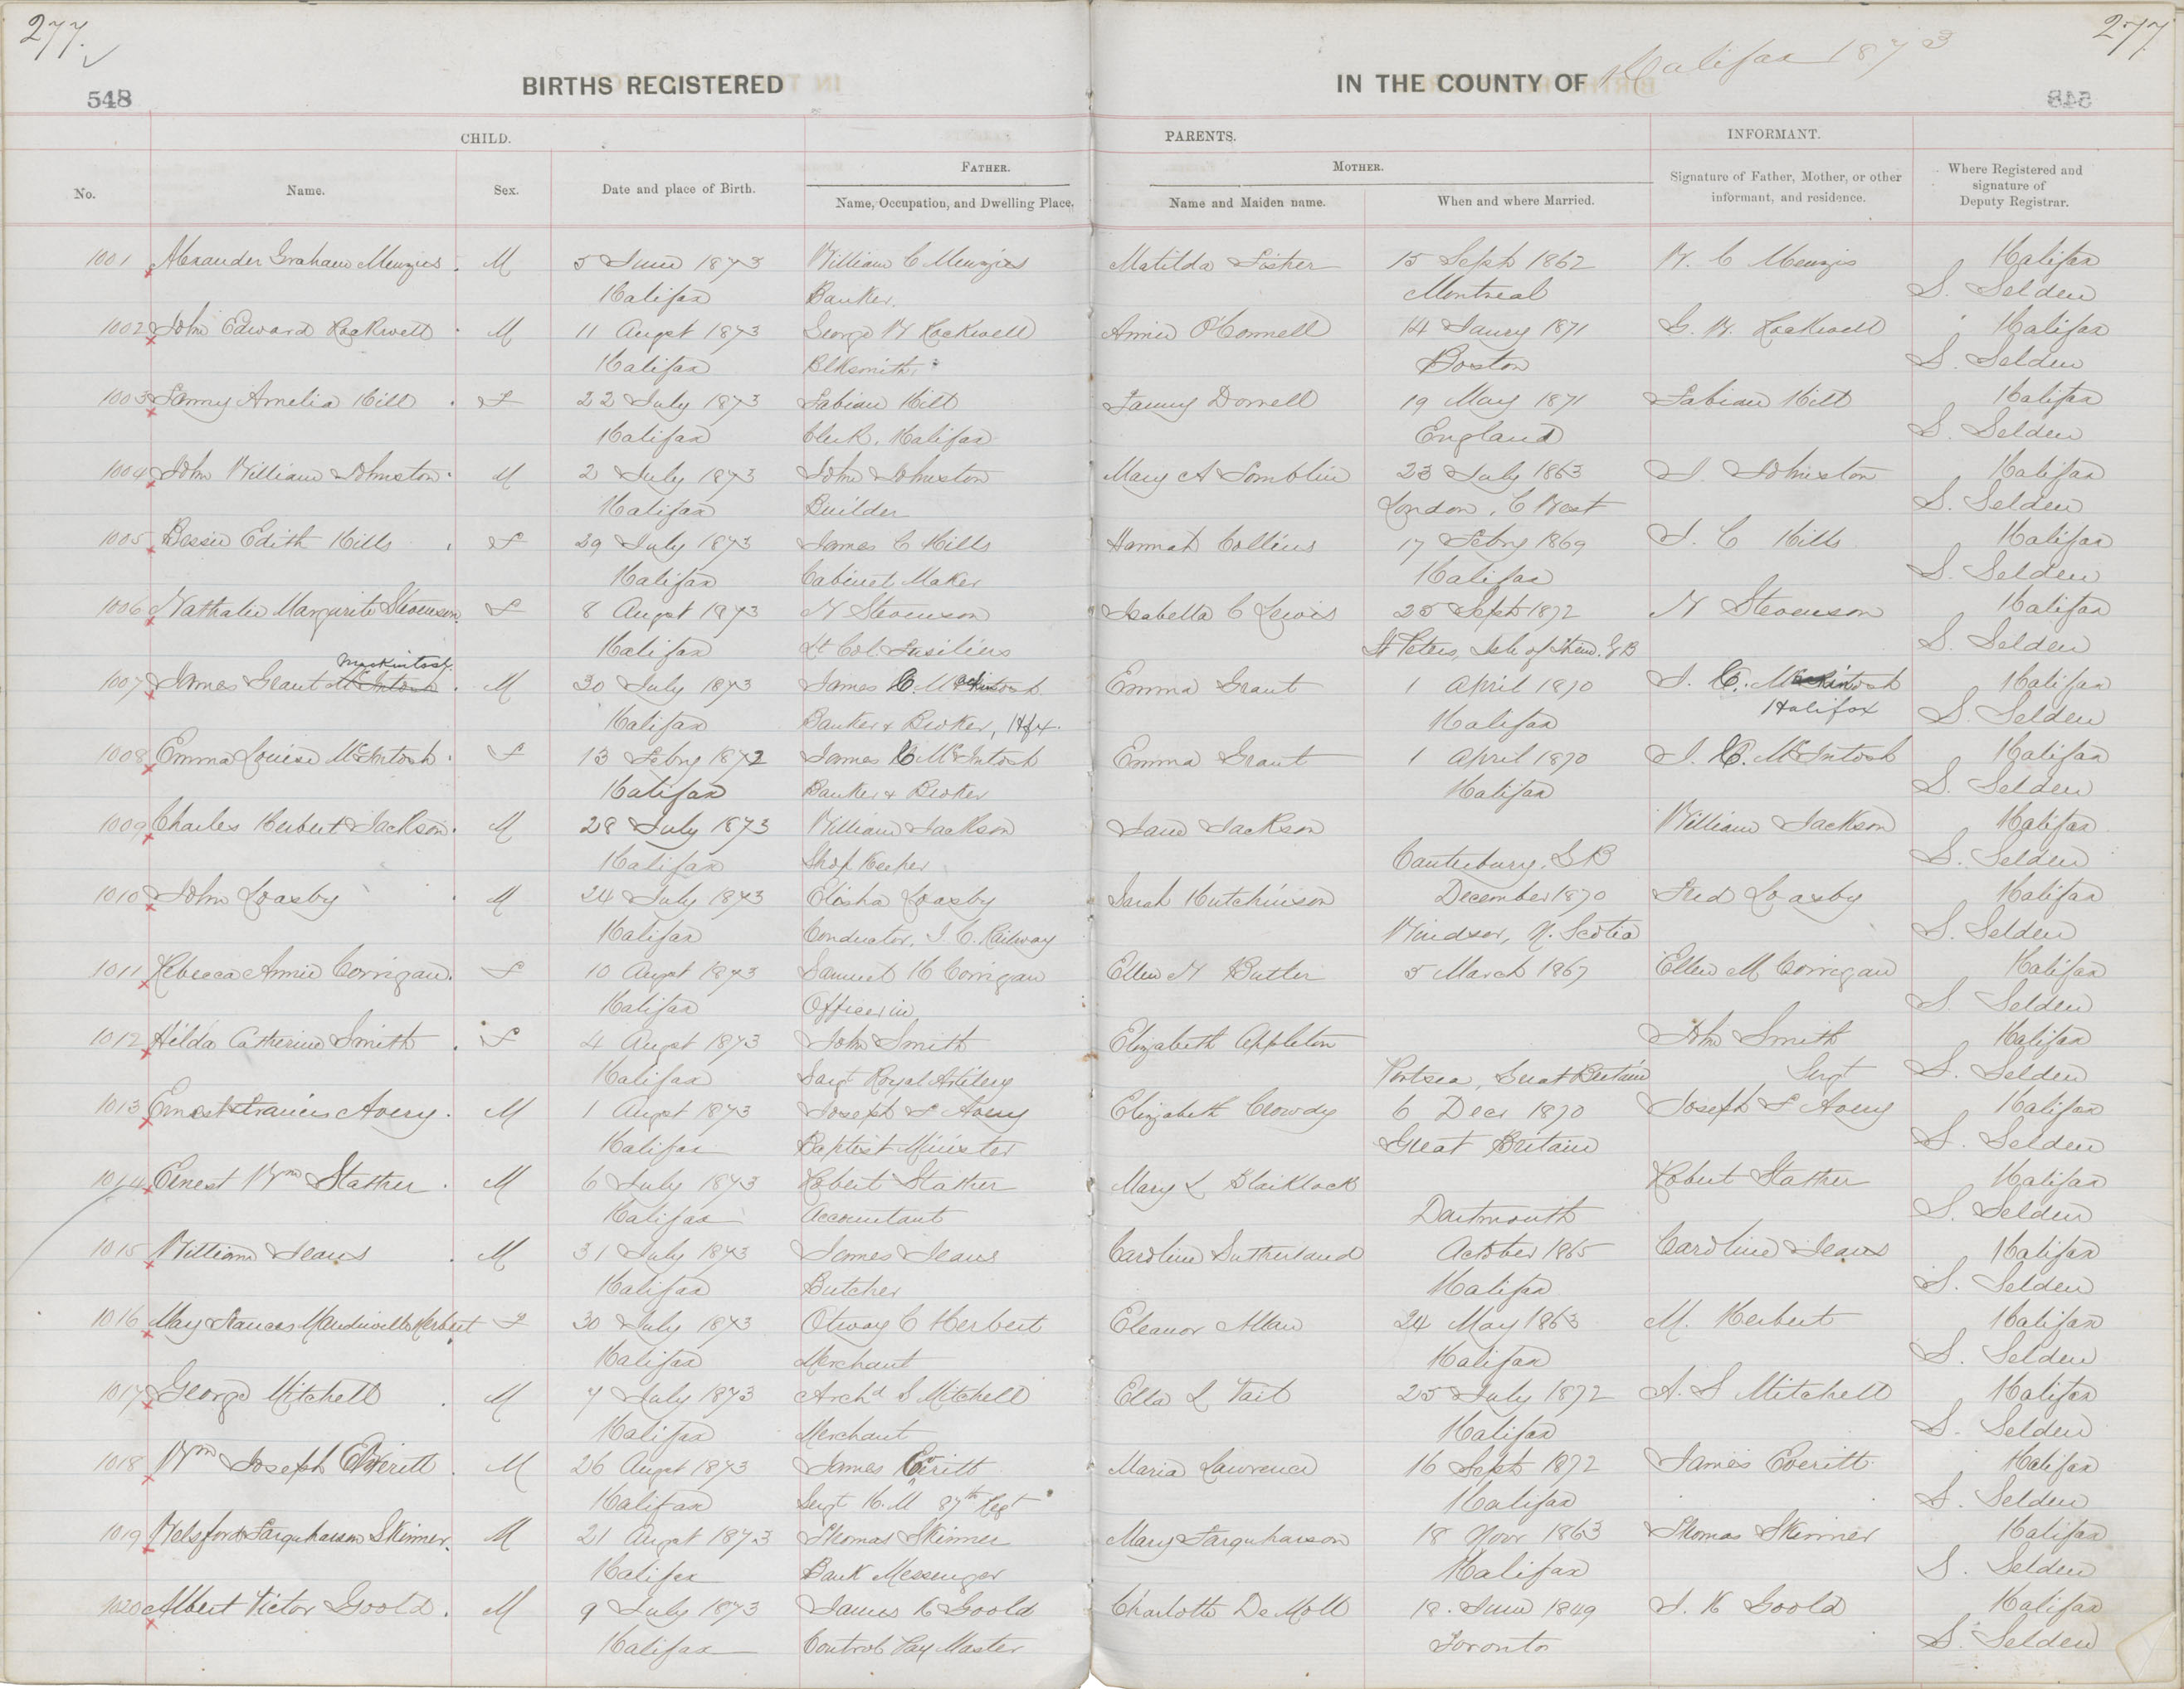 277. 277
Halifax 1873
BIRTHS REGISTERED IN THE COUNTY OF
548 548
CHILD. PARENTS. INFORMANT.
FATHER. MOTHER.
No. Name. Sex. Date and place of Birth. Name, Occupation, and Dwelling Place. Name and Maiden name. When and where Married. Signature of Father, Mother, or other informant, and residence. Where Registered and signature of Deputy Registrar.
1001 Alexander Graham Menzies M 5 June 1873 William C Menzies Matilda Fisher 15 Sept 1862 W. C Menzis Halifax
Halifax Banker. Montreal S. Selden
1002 John Edward Rockwell M 11 Augst 1873 George W Rockwell Annie O'Connell 14 Janry 1871 G. W. Rockwell Halifax
Halifax Blksmith Boston S. Selden
1003 Fanny Amelia Hill F 22 July 1873 Fabian Hill Fanny Dorrell 19 May 1871 Fabian Hill Halifax
Halifax Clerk, Halifax England S. Selden
1004 John William Johnston M 2 July 1873 John Johnston Mary A Tomblin 23 July 1863 J. Johnston Halifax
Halifax Builder London, C West S. Selden
1005 Bessie Edith Hills F 29 July 1873 James C Hills Hannah Collins 17 Febry 1869 J. C Hills Halifax
Halifax Cabinet Maker Halifax S. Selden
1006 Nathalie Margurite Stevenson F 8 Augst 1873 N Stevenson Isabella C Lewis 25 Sept 1872 N Stevenson Halifax
Halifax Lt Col. Fusiliers St Peters, Isle of Thew. GB S. Selden
Mackintosh
1007 James Grant McIntosh M 30 July 1873 James C. Mackintosh Emma Grant 1 April 1870 J. C. Mackintosh Halifax
Halifax Banker & Broker, Hfx. Halifax Halifax S. Selden
1008 Emma Louise McIntosh F 13 Febry 1872 James C McIntosh Emma Grant 1 April 1870 J. C. McIntosh Halifax
Halifax Banker & Broker Halifax S. Selden
1009 Charles Herbert Jackson M 28 July 1873 William Jackson Jane Jackson William Jackson Halifax
Halifax Shop Keeper Canterbury, GB S. Selden
1010 John Loasby M 24 July 1873 Elisha Loasby Sarah Hutchinson December 1870 Fred Loasby Halifax
Halifax Conductor, I. C. Railway Windsor, N. Scotia S. Selden
1011 Rebecca Annie Corrigan F 10 Augst 1873 Samuel H Corrigan Ellen M Butler 5 March 1867 Ellen M Corrigan Halifax
Halifax Officer in S. Selden
1012 Hilda Catherine Smith F 4 Augst 1873 John Smith Elizabeth Appleton John Smith Halifax
Halifax Sargt Royal Artilery Portsea, Great Britain Sergt S. Selden
1013 Ernest Francis Avery M 1 Augst 1873 Joseph F Avery Elizabeth Crowdy 6 Decr 1870 Joseph F Avery Halifax
Halifax Baptist Minister Great Britain S. Selden
1014 Ernest Wm Stather M 6 July 1873 Robert Stather Mary L Blaiklock Robert Stather Halifax
Halifax Accountant Dartmouth S. Selden
1015 William Jeans M 31 July 1873 James Jeans Caroline Sutherland October 1865 Caroline Jeans Halifax
Halifax Butcher Halifax S. Selden
1016 May Frances Mandeville Herbert F 30 July 1873 Otway C Herbert Eleanor Allan 24 May 1863 M. Herbert Halifax
Halifax Merchant Halifax S. Selden
1017 George Mitchell M 7 July 1873 Archd S Mitchell Ella L Tait 25 July 1872 A. S Mitchell Halifax
Halifax Merchant Halifax S. Selden
1018 Wm Joseph Everitt M 26 Augst 1873 James Everitt Maria Lawrence 16 Sept 1872 James Everitt Halifax
Halifax Sergt H. M 87th Regt Halifax S. Selden
1019 Welsford Farquharson Skinner M 21 Augst 1873 Thomas Skinner Mary Farquharson 18 Novr 1863 Thomas Skinner Halifax
Halifax Bank Messenger Halifax S. Selden
1020 Albert Victor Goold M 9 July 1873 James H Goold Charlotte De Moll 18. June 1849 J. H Goold Halifax
Halifax Control Pay Master Toronto S. Selden